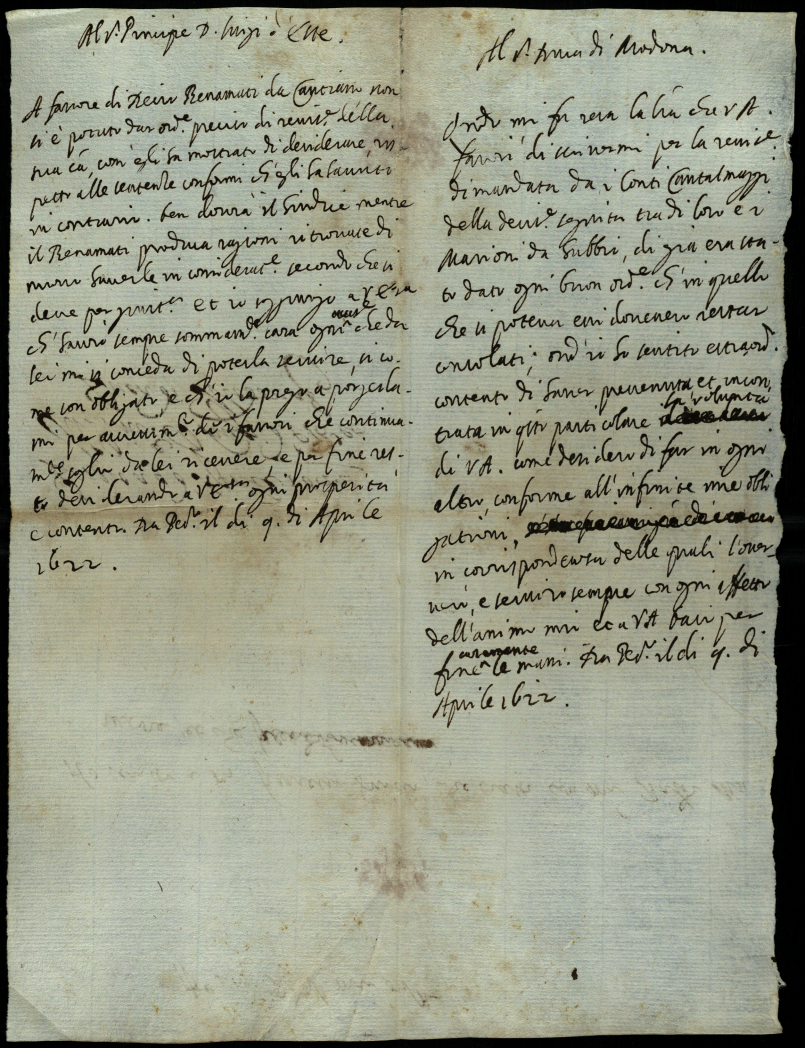 Al s.r Principe D. Luigi d'Este.
A favore di Decio Renamati da Cantiano non
si è potuto dar ord.e preciso di revis.e della
sua ca, com'egli ha mostrato di desiderare, ris-
petto alle sentenze conformi ch'egli ha havuti
in contrario. ben dovrà il Giudice mentre
il Renamati produca ragioni ritrovate di
nuovo haverle in considerat.e secondo che si
deve per giust.a et io soggiungo a V Ecc.za
ch'havrò sempre sommam.e cara ogni occ.e che da
lei mi si conceda di poterla servire, si co-
me son obligato e ch'io la prego a porgerla-
mi per accrescim.o di i favori che continua-
m.te soglio da lei ricevere, e per fine res-
to desiderando a V Ecc.za ogni prosperità,
e contento. Da Ped.o il di 9. di Aprile
1622.
Al s.r Duca di Modona.
Quando mi fu resa la l.ra che V A.
favorì di scrivermi per la revis.e
dimandata da i Conti Cantalmaggi
della decis.e seguita tra di loro e i
Marioni da Gubbio, di già era sta-
to dato ogni buon ord.e ch'in quello
che si poteva essi dovevero restar
consolati; ond'io ho sentito estraord.o
contento di haver prevenuta et incon-
trata in q.sto particolare la volontà
di V A. come desidero di far in ogni
altro, conforme all'infinite mie obli
gationi,
in corrispondenza delle quali l'osser-
verò, e servirò sempre con ogni affetto
dell'animo mio et a V A bacio per
fine caramente le mani. Da Ped.o il di 9. di
Aprile 1622.